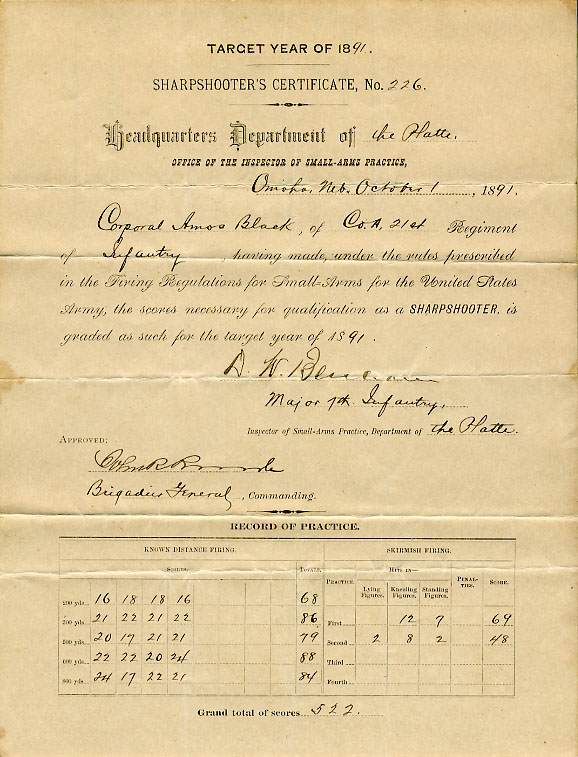 TARGET YEAR OF 1891.
SHARPSHOOTER'S CERTIFICATE, No. 226.
Headquarters Department of the Platte.
OFFICE OF THE INSPECTOR OF SMALL-ARMS PRACTICE,
Omaha, Neb. October 1, 1891.
Corporal Amos Black, of Co. A, 21st Regiment
of Infantry, having made, under the rules prescribed
in the Firing Regulations for Small-Arms for the United States
Army, the scores necessary for qualification as a SHARPSHOOTER, is
graded as such for the target year of 1891.
D. W. Benham
Major 7th Infantry,
Inspector of Small-Arms Practice, Department of the Platte.
APPROVED:
Brigadier General, Commanding.
RECORD OF PRACTICE.
KNOWN DISTANCE FIRING. SKIRMISH FIRING.
SCORES. TOTALS. PRACTICE. HITS IN— PENAL-TIES. SCORE.
Lying Figures. Kneeling Figures. Standing Figures.
200 yds. 16 18 18 16 68
300 yds. 21 22 21 22 86 First 12 7 69
500 yds. 20 17 21 21 79 Second 2 8 2 48
600 yds. 22 22 20 24 88 Third
800 yds. 24 17 22 21 84 Fourth
Grand total of scores 522.